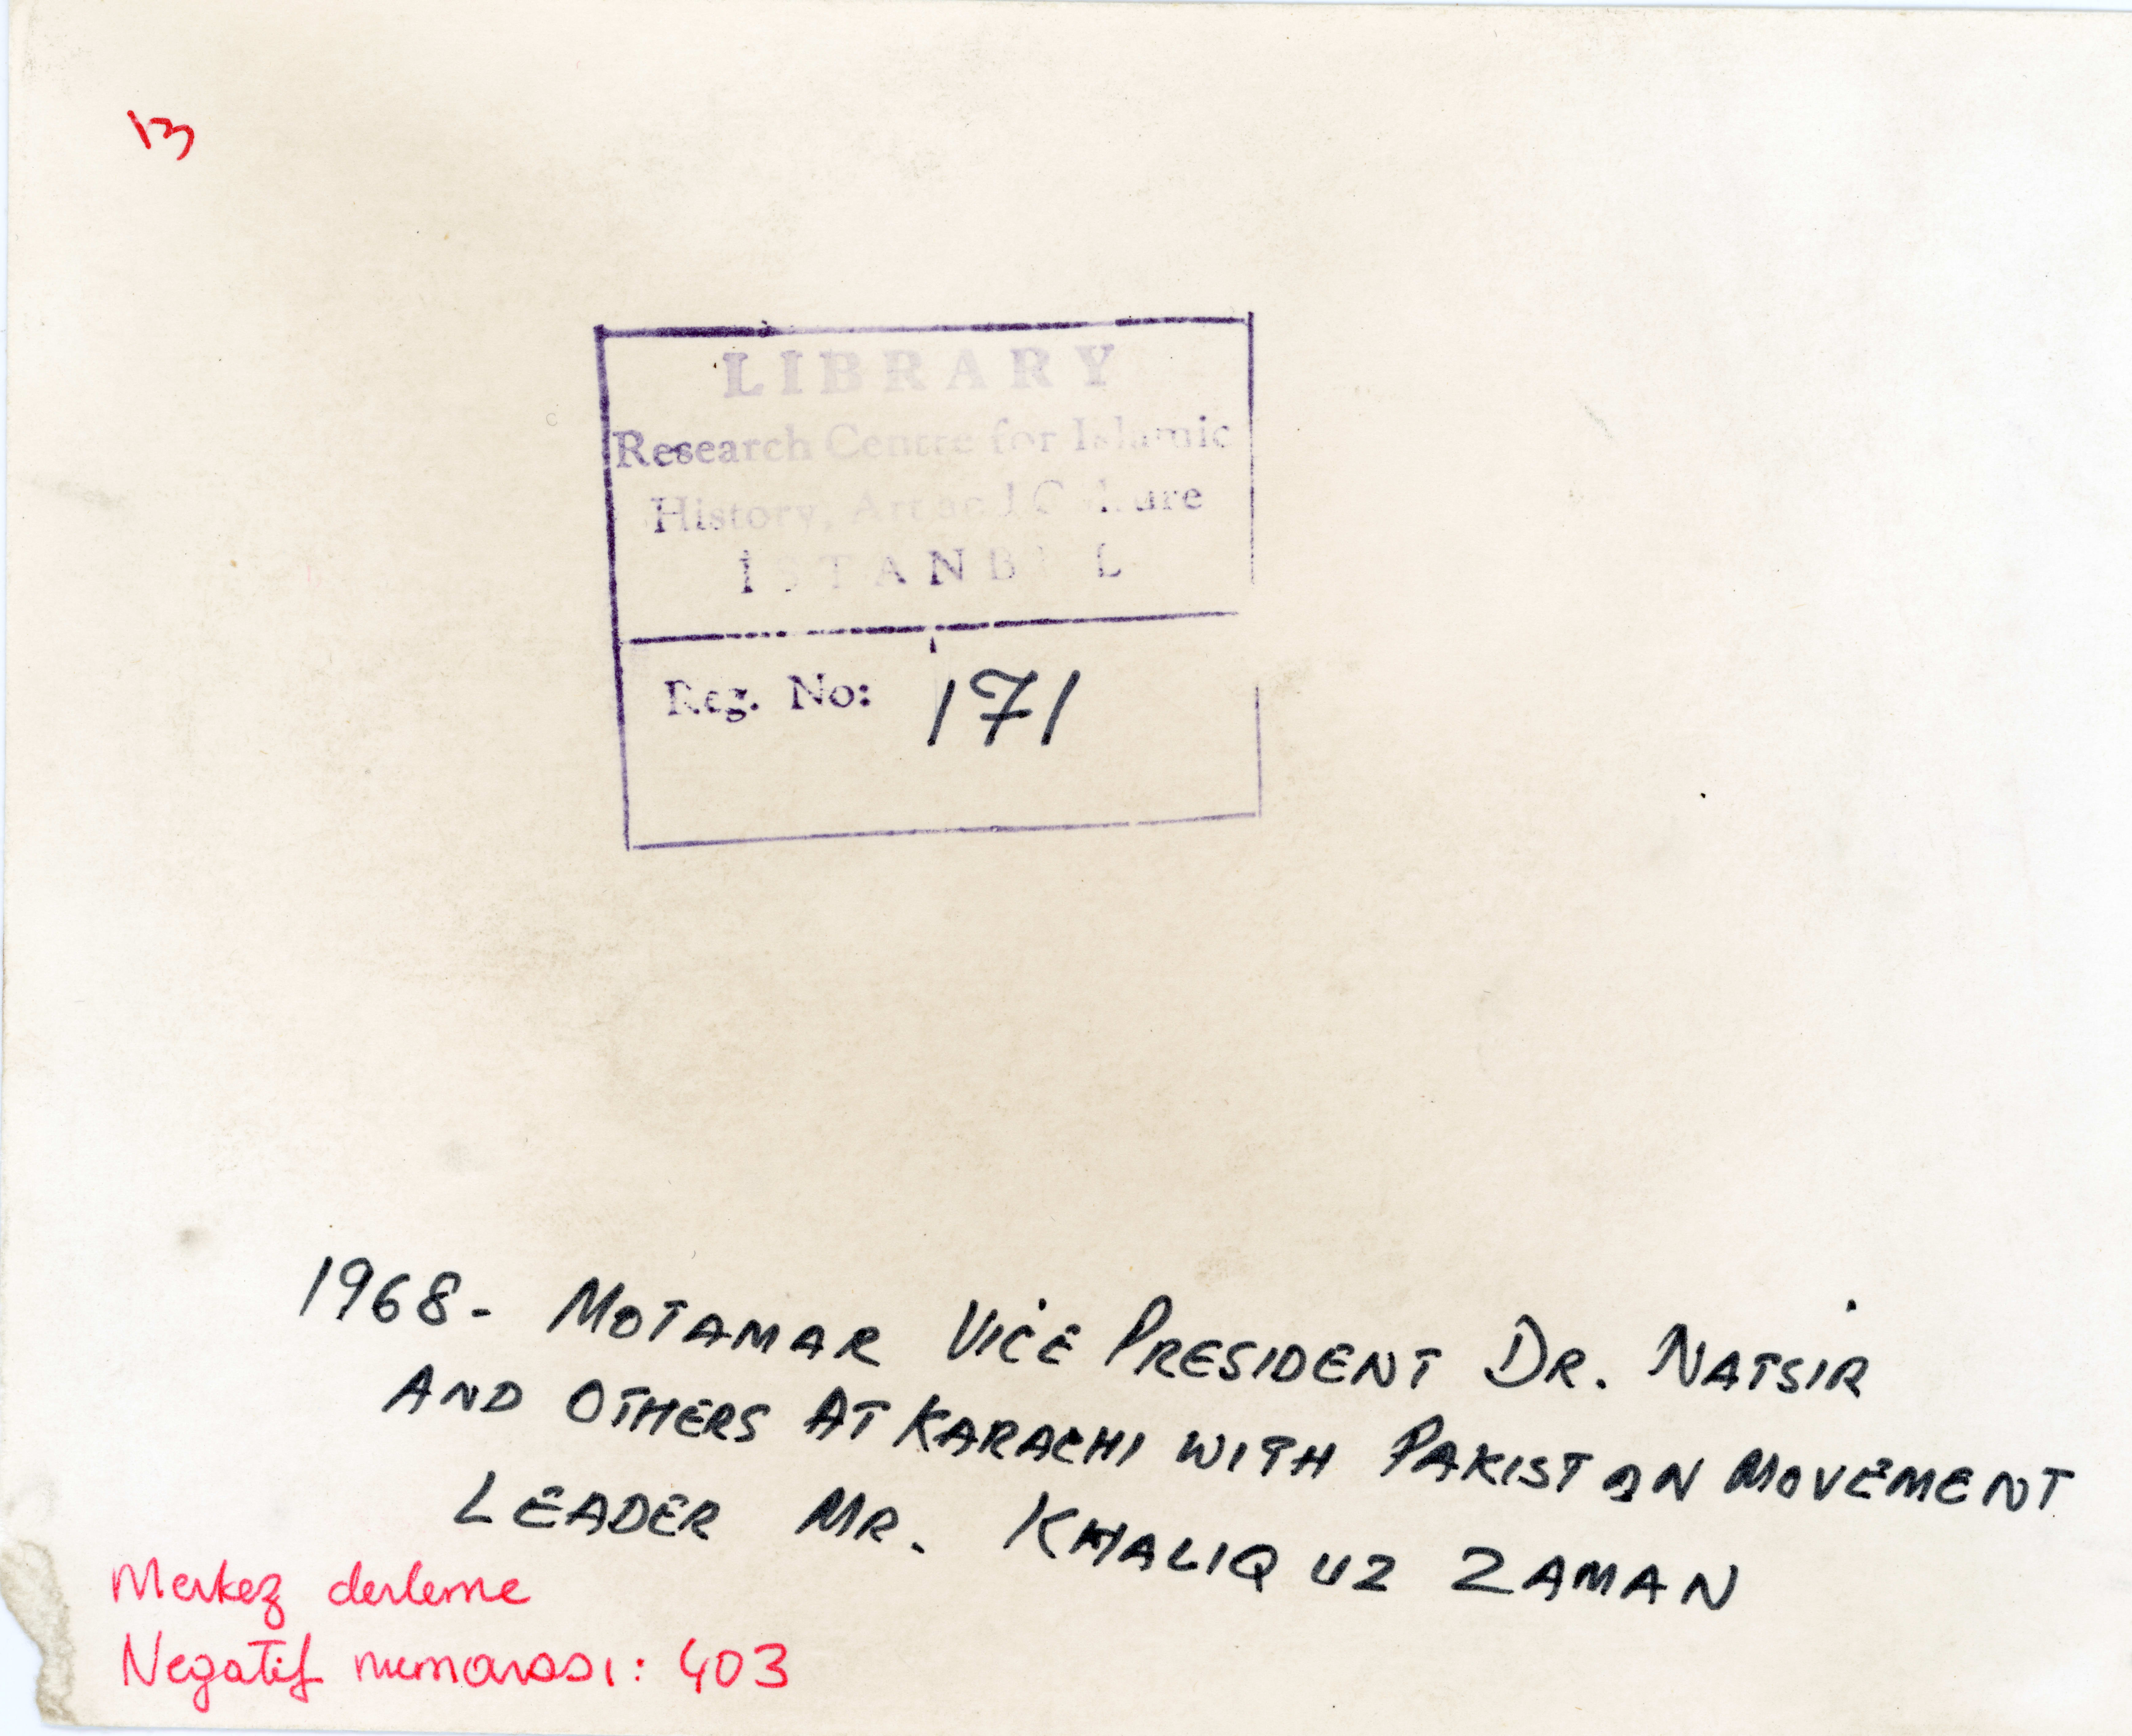 13
LIBRARY
Research Centre for Islamic
History, Art and Culture
ISTANBUL
Reg. No: 171
1968- MOTAMAR VICE PRESIDENT DR. NATSIR
AND OTHERS AT KARACHI WITH PAKISTAN MOVEMENT
LEADER MR. KHALIQ UZ ZAMAN
Merkez derleme
Negatif numarası: 403